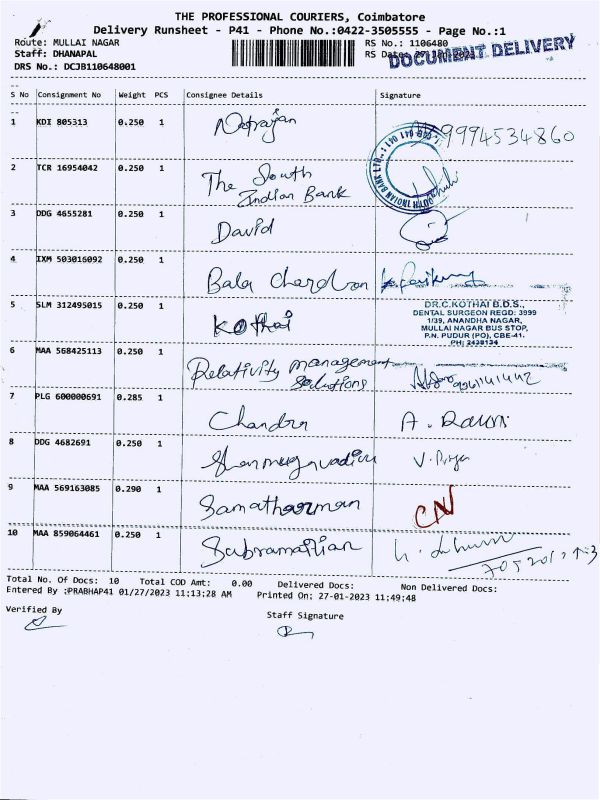 THE PROFESSIONAL COURIERS, Coimbatore
Delivery Runsheet - P41 - Phone No.:0422-3505555 - Page No.:1
Route: MULLAI NAGAR
RS No.: 1106480
Staff: DHANAPAL
RS Date: 27 Jan 2023
DOCUMENT DELIVERY
DRS No.: DCJB110648001
S No Consignment No Weight PCS Consignee Details Signature
1 KDI 805313 0.250 1 Natrajan 9994534860
2 TCR 16954042 0.250 1 The South
Indian Bank
3 DDG 4655281 0.250 1 David
4 IXM 503016092 0.250 1 Bala Chandran
5 SLM 312495015 0.250 1 Kothai
DR.C.KOTHAI B.D.S.,
DENTAL SURGEON REGD: 3999
1/39, ANANDHA NAGAR,
MULLAI NAGAR BUS STOP,
P.N. PUDUR (PO), CBE-41.
PH: 2438134
6 MAA 568425113 0.250 1 Relativity management
solutions
7 PLG 600000691 0.285 1 Chandra A. Rawi
8 DDG 4682691 0.250 1 Shanmugavadivu V. Priya
9 MAA 569163085 0.290 1 CNV
10 MAA 859064461 0.250 1 Subramanian
Total No. Of Docs: 10 Total COD Amt: 0.00 Delivered Docs: Non Delivered Docs:
Entered By :PRABHAP41 01/27/2023 11:13:28 AM Printed On: 27-01-2023 11:49:48
Verified By
Staff Signature